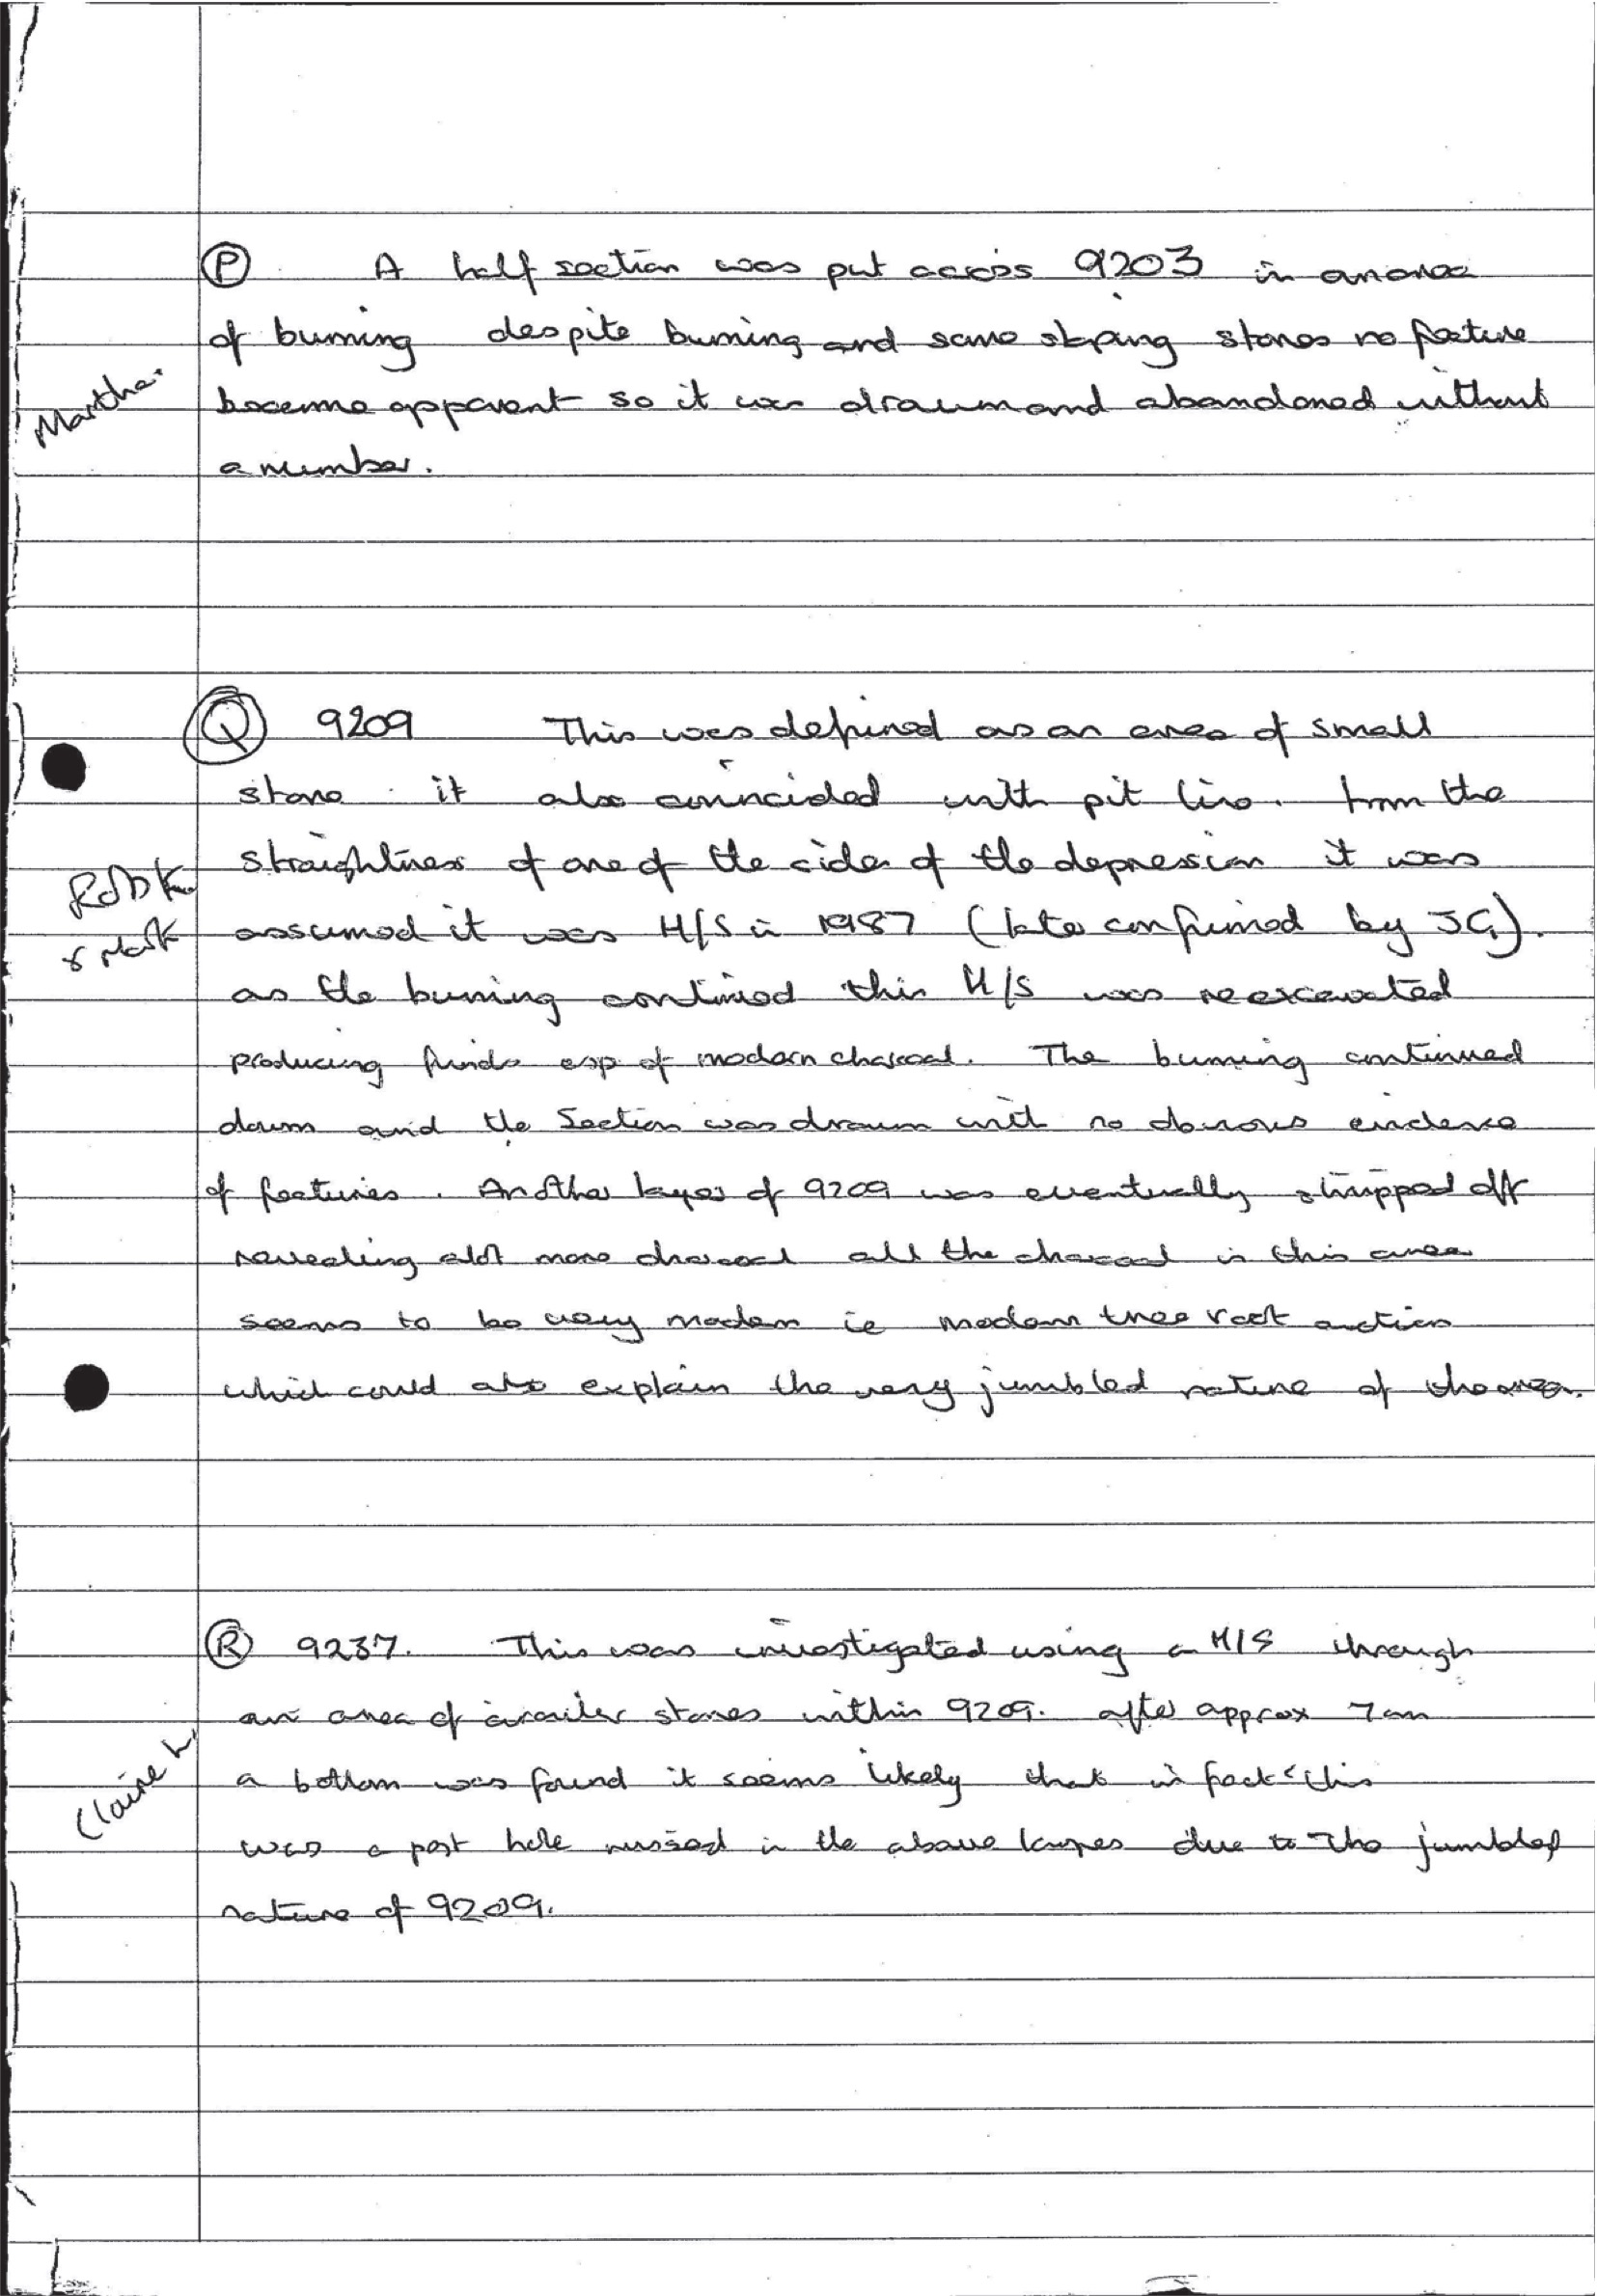 Ⓟ A half section was put across 9203 in an area
of burning despite burning and some sloping stones no feature
Martha. became apparent so it was drawn and abandoned without
a number.
Ⓠ 9209 This was defined as an area of small
stone it also coincided with pit line. from the
straightness of one of the sides of the depression it was
& Mark assumed it was H/S in 1987 (late confirmed by JG).
as the burning continued this H/S was reexcavated
producing finds esp of modern charcoal. The burning continued
down and the Section was drawn with no obvious evidence
of features. Another layer of 9209 was eventually stripped off
revealing alot more charcoal all the charcoal in this area
seems to be very modern ie modern tree root action
which could also explain the very jumbled nature of the area.
Ⓡ 9237. This was investigated using a H/S through
an area of circular stones within 9209. after approx 7cm
Claire L. a bottom was found it seems likely that in fact this
was a post hole missed in the above layers due to the jumbled
nature of 9209.